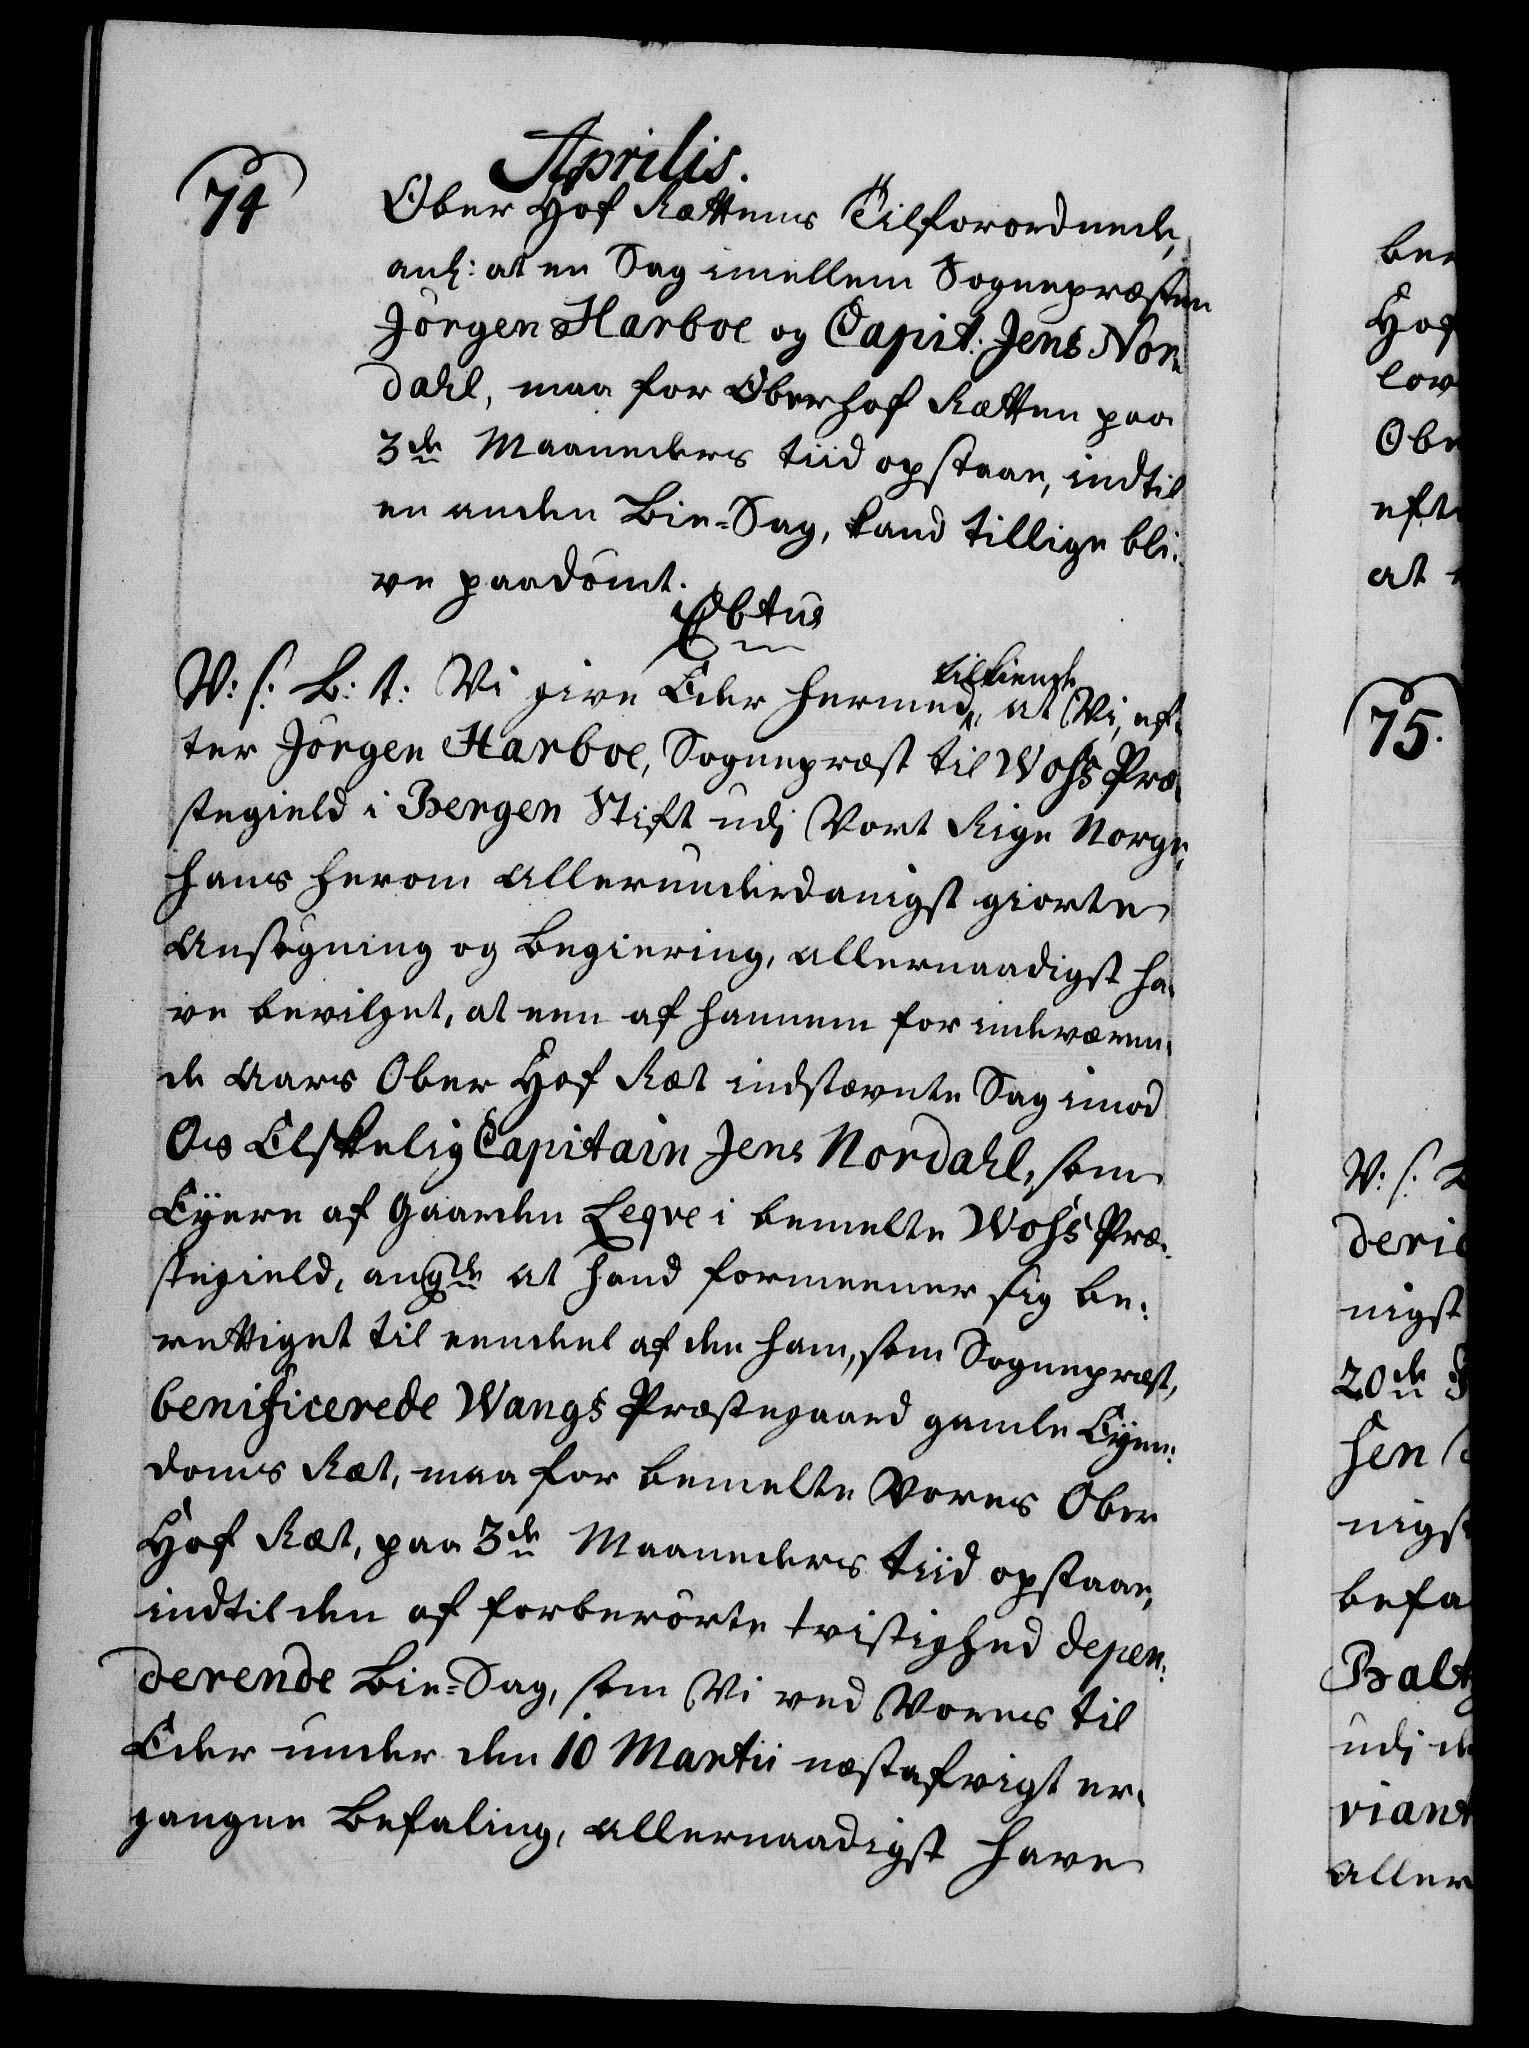 Aprilis.
74
Ober Hof Rettens Tilforordnede,
anl: at en Sag imellem Sognepræsten
Jörgen Harboe og Capit: Jens Nor
dahl, maa for Oberhof Retten paa
3de Maaneders tiid opstaae, indtil
en anden Bie-Sag, kand tillige bli-
ve paadömt.
V: s: B: t: Vi give Eder hermed, tilkiende at Vi, ef-
ter Jörgen Harboe, Sognepræst til Wohs Præ-
stegield i Bergen Stift udj Vort Rige Norge,
hans herom allerunderdanigst giorte
Ansögning og begiering, allernaadigst ha-
ve bevilget, at een af hannem for indeværen-
de Aars Ober Hof Ræt indstevnte Sag imod
Os Elskelig Capitain Jens Nordahl, som
Eyere af Gaarden Leqve i bemelte Wohs Præ-
stegield, angde at hand formeener sig be-
rettiget til eendeel af den ham, som Sognepræst,
benificerede Wangs Præstegaard gamle Eyen-
doms Ræt, maa for bemelte Vores Ober
Hof Ræt, paa 3de Maaneders tiid opstaae,
indtil den af forberörte tvistighed depen-
derende Bie-Sag, som Vi ved Vores til
Eder under den 10 Martii næstafvigt er-
gangne Befaling, allernaadigst have
Hof
Obe
at
75.
V: s: B
deric
nigst
20de
hen
nigst
befa
Baltz
viant
aller